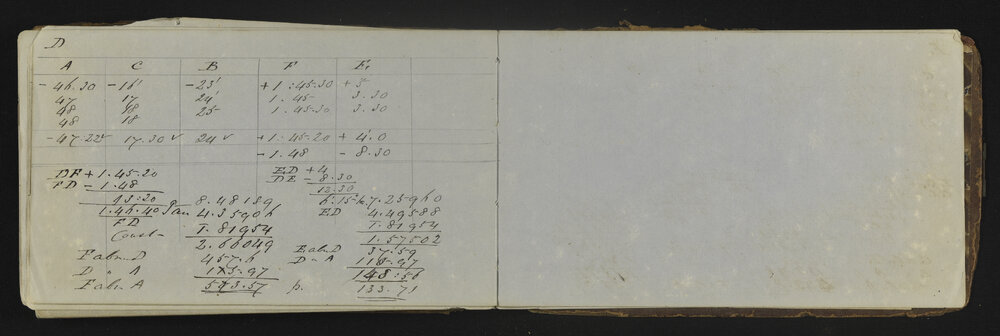 D
A C B F E,
- 46.30 - 16' - 23' + 1:45.30 + 5'
47 17 24' 1.45 3.30
48 18 25 1.45.30 3.30
48 18
- 47.22 17.30 v 24 v + 1.45.20 + 4.0
- 1.48 - 8.30
DF + 1.45.20 ED + 4
FD - 1.48 DE - 8.30
13:20 12.30
1.46.40 Tan 8.48189 6.15 7.25960
FD 4.35906 ED 4.49588
Const- T.81954 T.81954
2.66049 1.57502
F abv. D 457.6 E abv. D 37.59
D " A 115.97 D " A 115.97
F abv. A 573.57 p. 133.71